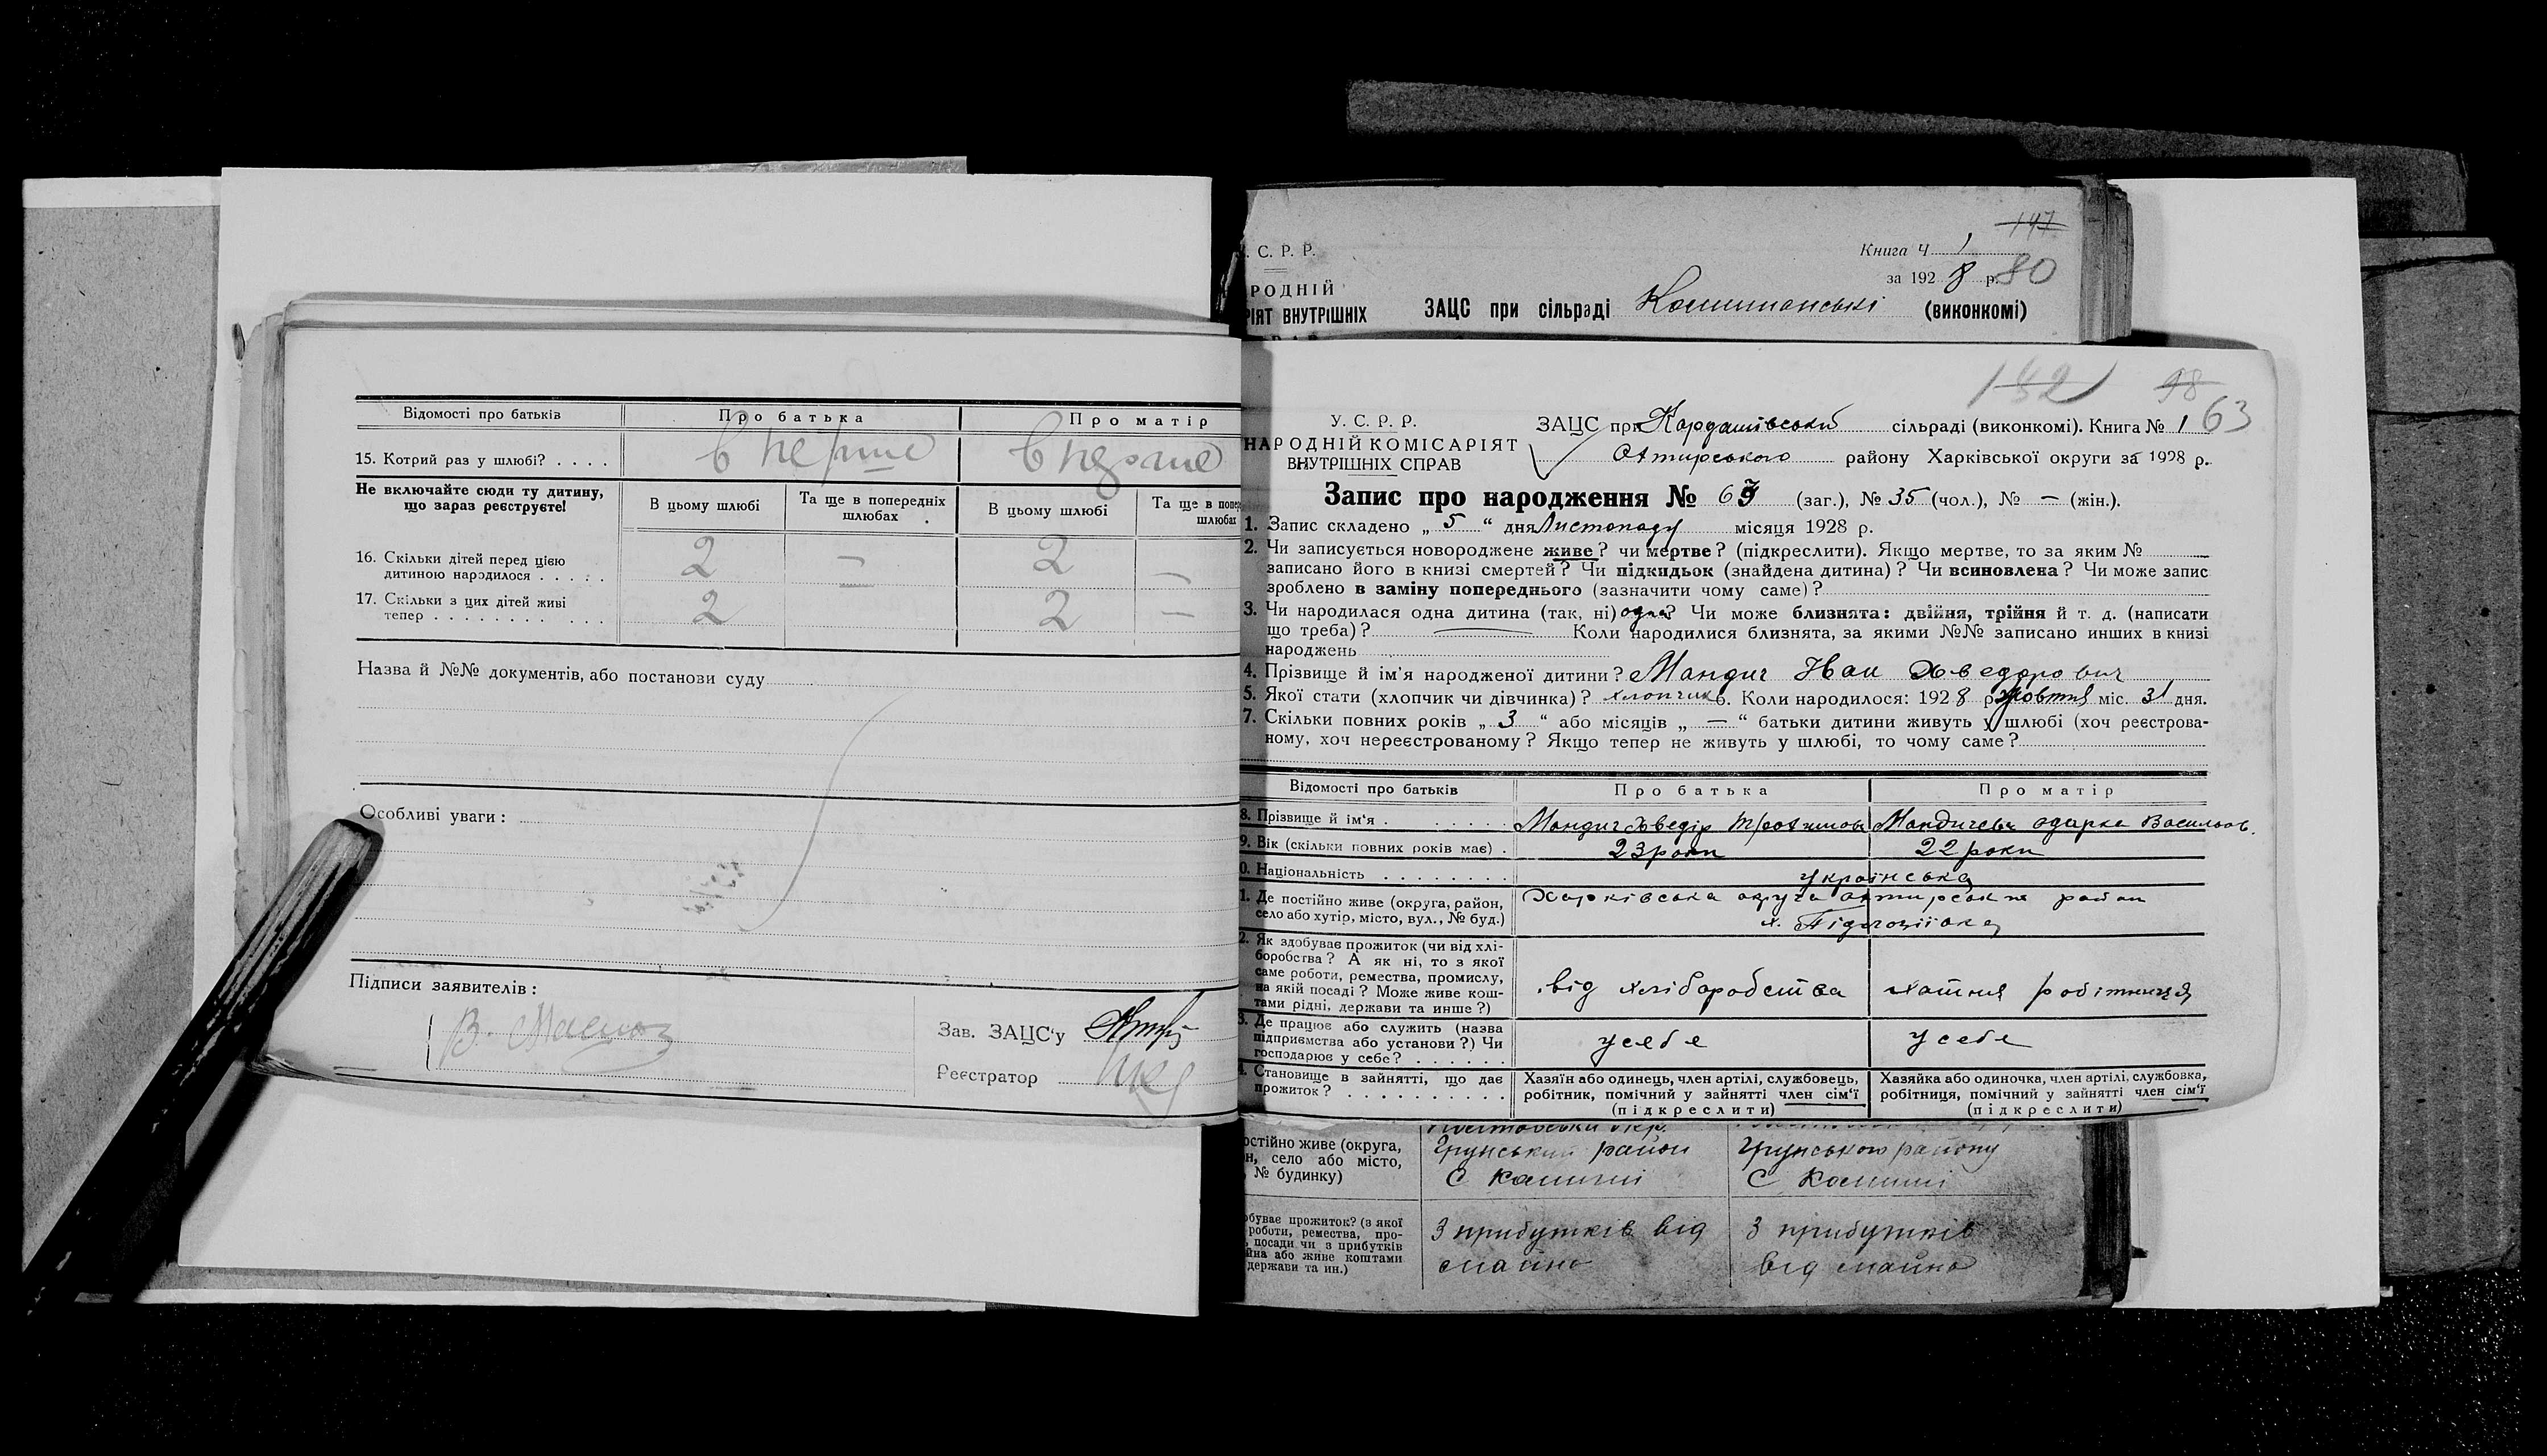 Відомості про батьків Про батька Про матір
15. Котрий раз у шлюбі? . . . . вперше вперше
Не включайте сюди ту дитину, що зараз реєструєте! В цьому шлюбі Та ще в попередніх шлюбах В цьому шлюбі Та ще в попе шлюбах
16. Скільки дітей перед цією
дитиною народилося . . . . . 2 — 2 —
17. Скільки з цих дітей живі
тепер . . . . . . . . . . . 2 2 —
Назва й №№ документів, або постанови суду
Особливі уваги:
Підписи заявителів:
Зав. ЗАЦС'у
Реєстратор
147
. С. Р. Р. Книга Ч 1
за 1928 р. 80
РОДНІЙ
РІЯТ ВНУТРІШНІХ ЗАЦС при сільраді (виконкомі)
142 98
63
У. С. Р. Р. ЗАЦС при Кардашівській сільраді (виконкомі). Книга № 1
НАРОДНІЙ КОМІСАРІЯТ
ВНУТРІШНІХ СПРАВ Охтирського району Харківської округи за 1928 р.
Запис про народження № 63 (заг.), № 35 (чол.), № — (жін.).
1. Запис складено „ 5 “ дня Листопаду місяця 1928 р.
2. Чи записується новороджене живе? чи мертве? (підкреслити). Якщо мертве, то за яким №
записано його в книзі смертей? Чи підкидьок (знайдена дитина)? Чи всиновлена? Чи може запис
зроблено в заміну попереднього (зазначити чому саме)?
3. Чи народилася одна дитина (так, ні) одна? Чи може близнята: двійня, трійня й т. д. (написати
що треба)? — Коли народилися близнята, за якими №№ записано инших в книзі
народжень
4. Прізвище й ім'я народженої дитини? Мандич Іван Хведорович
5. Якої стати (хлопчик чи дівчинка)? хлопчик 6. Коли народилося: 1928 р. Жовтня міс. 31 дня.
7. Скільки повних років „ 3 “ або місяців „ — “ батьки дитини живуть у шлюбі (хоч реєстрова-
ному, хоч нереєстрованому? Якщо тепер не живуть у шлюбі, то чому саме?
Відомості про батьків Про батька Про матір
8. Прізвище й ім'я . . . . . . Мандич Хведір Мандичева Одарка Васильов.
9. Вік (скільки повних років має) . 23 роки 22 роки
0. Національність . . . . . . . . українська
1. Де постійно живе (округа, район, Харківська округа Охтирський район
село або хутір, місто, вул., № буд.) х.
2. Як здобуває прожиток (чи від хлі-
боробства? А як ні, то з якої
саме роботи, ремества, промислу,
на якій посаді? Може живе кош-
тами рідні, держави та инше?) від хліборобства хатня робітниця
3. Де працює або служить (назва
підприємства або установи?) Чи
господарює у себе? . . . . . . у себе у себе
4. Становище в зайнятті, що дає
прожиток? . . . . . . . . . .
Хазяїн або одинець, член артілі, службовець,
робітник, помічний у зайнятті член сім'ї
(підкреслити)
Хазяйка або одиночка, член артілі, службовка,
робітниця, помічний у зайнятті член сім'ї
(підкреслити)
остійно живе (округа, Грунський район Грунського району
н, село або місто,
№ будинку)
обуває прожиток? (з якої З прибутків від З прибутків
роботи, ремества, про-
, посади чи з прибутків
йна або живе коштами майна від майна
держави та ин.)